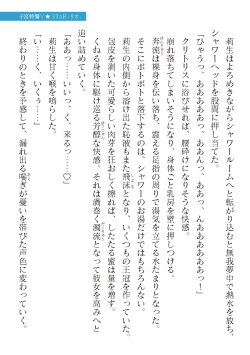 莉生はよろめきながらシャワールームへと転がり込むと無我夢中で熱水を放ち、
シャワーヘッドを股間に押し当てた。
「ひゃうっ、あああああっ、んあああっ、あっ、あっ、んああああああっ！」
クリトリスに浴びせれば、腰砕けになりそうな快感。
崩れ落ちてしまいそうになり、身体ごと乳房を壁に押しつける。
奔流は裸身を伝い落ち、震える足指の周りで渦を立てる水たまりとなった。
そこにボトボトと落ちていくのは、シャワーのお湯だけではもちろんない。
莉生の内側から溶け出た恥液もまた飛沫となり、いくつもの王冠を作っていった。
包皮を剥いた可愛らしい肉芽を狂おしく擦れば、したたる蜜は量を増す。
くねる身体に駆け巡る芳醇な快感。それは渦巻く濁流となって彼女を高みへと
追い詰めていく。
「ああっ……いいっ、く、来るっ……♡」
莉生は甘く喉を鳴らした。
「い……く、いくぅ――！」
終わりのときを予感して、漏れ出る喘ぎが憂いを帯びた声色に変わっていく。